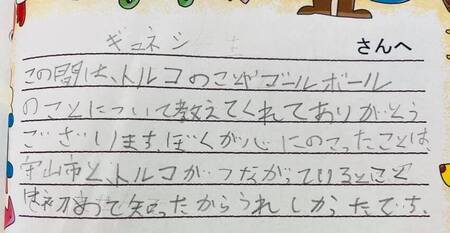 ギュネシ さんへ
この間は、トルコのことやゴールボール
のことについて教えてくれてありがとう
ございますぼくが心にのこったことは、
守山市と、トルコがつながっているとこと
は初めって知ったからうれしかったでち。